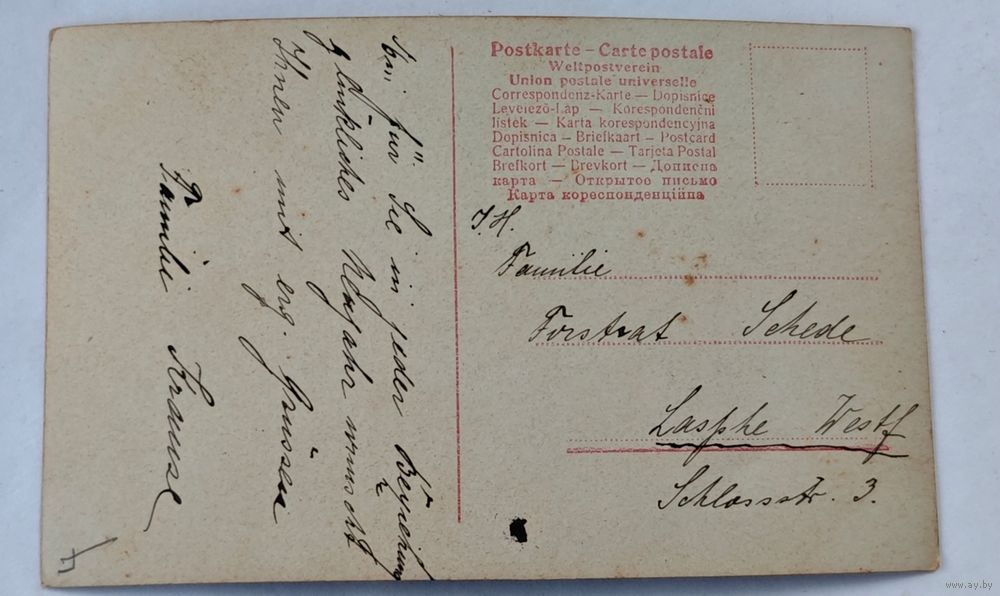 Ein für Sie in jeder Beziehung
glückliches Neujahr wünscht
Ihnen mit erg. Grüssen
Familie Krause
Postkarte – Carte postale
Weltpostverein
Union postale universelle
Correspondenz-Karte — Dopisnice
Levelező-Lap — Korespondenční
listek — Karta korespondencyjna
Dopisnica – Briefkaart – Postcard
Cartolina Postale — Tarjeta Postal
Brefkort — Brevkort — Дописна
карта — Открытое письмо
Карта кореспонденційна
I. H.
Familie
Forstrat Schede
Lasphe Westf
Schlossstr. 3.
www.ay.by